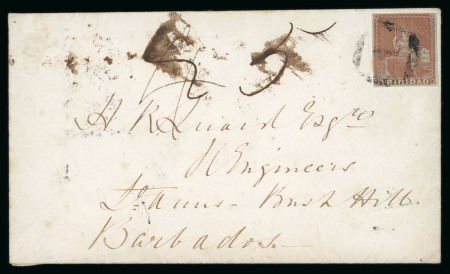 5
TRINIDAD
H R Luard Esqre
Engineers
St Anns - Bush Hill.
Barbados